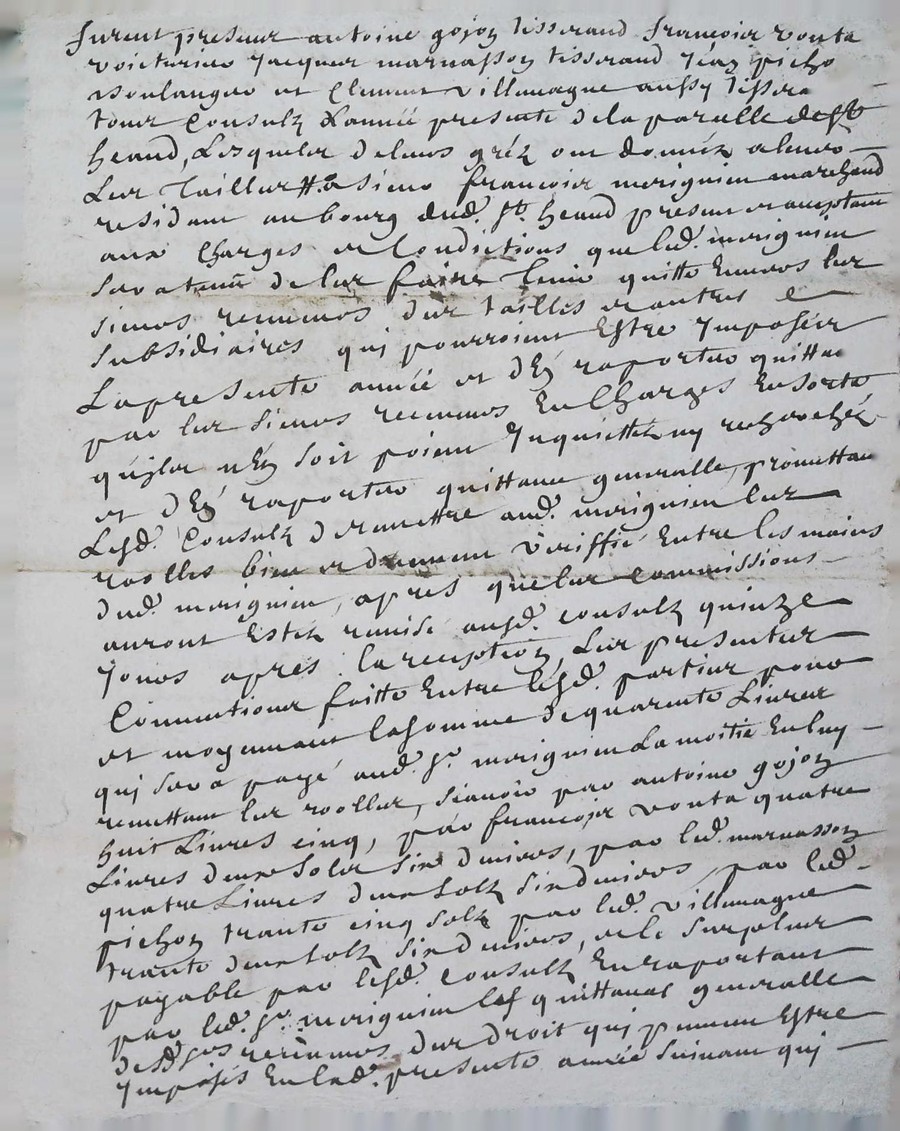 furent presens antoine gojon tisserand francois vonta
voicturier Jacques marnasson tisserand Jean picho
boulanger et Clement villemagne aussy tissera
tous Consulz Lannée presente de la parelle de St
heand, Lesquels de leurs gréz ont donnéz a lever
Les Tailles a sieur francois merignieu marchand
residant au bourg dud. St. heand present et acceptant
aux Charges et Condictions que led. merignieu
sera tenu de les faire tenir quitte Envers les
sieurs receveurs des tailles et autres
subsidiaires qui pourroient Estre Imposéés
La presente année et d'En raporter quittance
par les sieurs receveurs En Charges En sorte
qu'ilz n'En soit poient Inquiettéz ny recherchéz
et d'En raporter quittance generalle, promettan
Lesd. Consulz de remettre aud. merignieu les
roolles bien et deument veriffié Entre les mains
dud. merignieu, apres que les Commissions
auront Estéz remise ausd. consulz quinze
Jours apres la reception, Les presentes
Conventions faitte Entre lesd. parties pour
et moyennant la somme de quarente Livres
qui sera payé aud. Sr. merignieu La moitié En luy
remettant les roolles, scavoir par antoine gojon
huit Livres cinq, par francois vonta quatre
Livres deux solz six deniers, par led. marnasson
quatre Livres deux solz six deniers, par led.
pichon trante cinq solz par led. villemagne
trante deux solz six deniers, et le surplus
payable par lesd. Consulz En raportant
par led. Sr. merignieu les quittances generalle
desd. Srs receveurs des droit qui peuvent Estre
Imposés En lad. presente année suivant qui